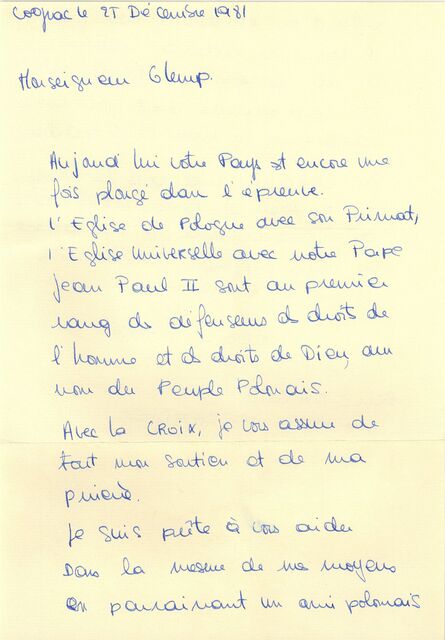 Cognac le 27 Décembre 1981
Monseigneur Glemp.
Aujourd'hui votre Pays est encore une
fois plongé dans l'épreuve.
L'Eglise de Pologne avec son Primat,
l'Eglise Universelle avec notre Pape
Jean Paul II sont au premier
rang des défenseurs des droits de
l'homme et des droits de Dieu, au
nom du Peuple Polonais.
Avec la CROIX, je vous assure de
tout mon soutien et de ma
prière.
Je suis prête à vous aider
Dans la mesure de mes moyens
en parrainant un ami polonais